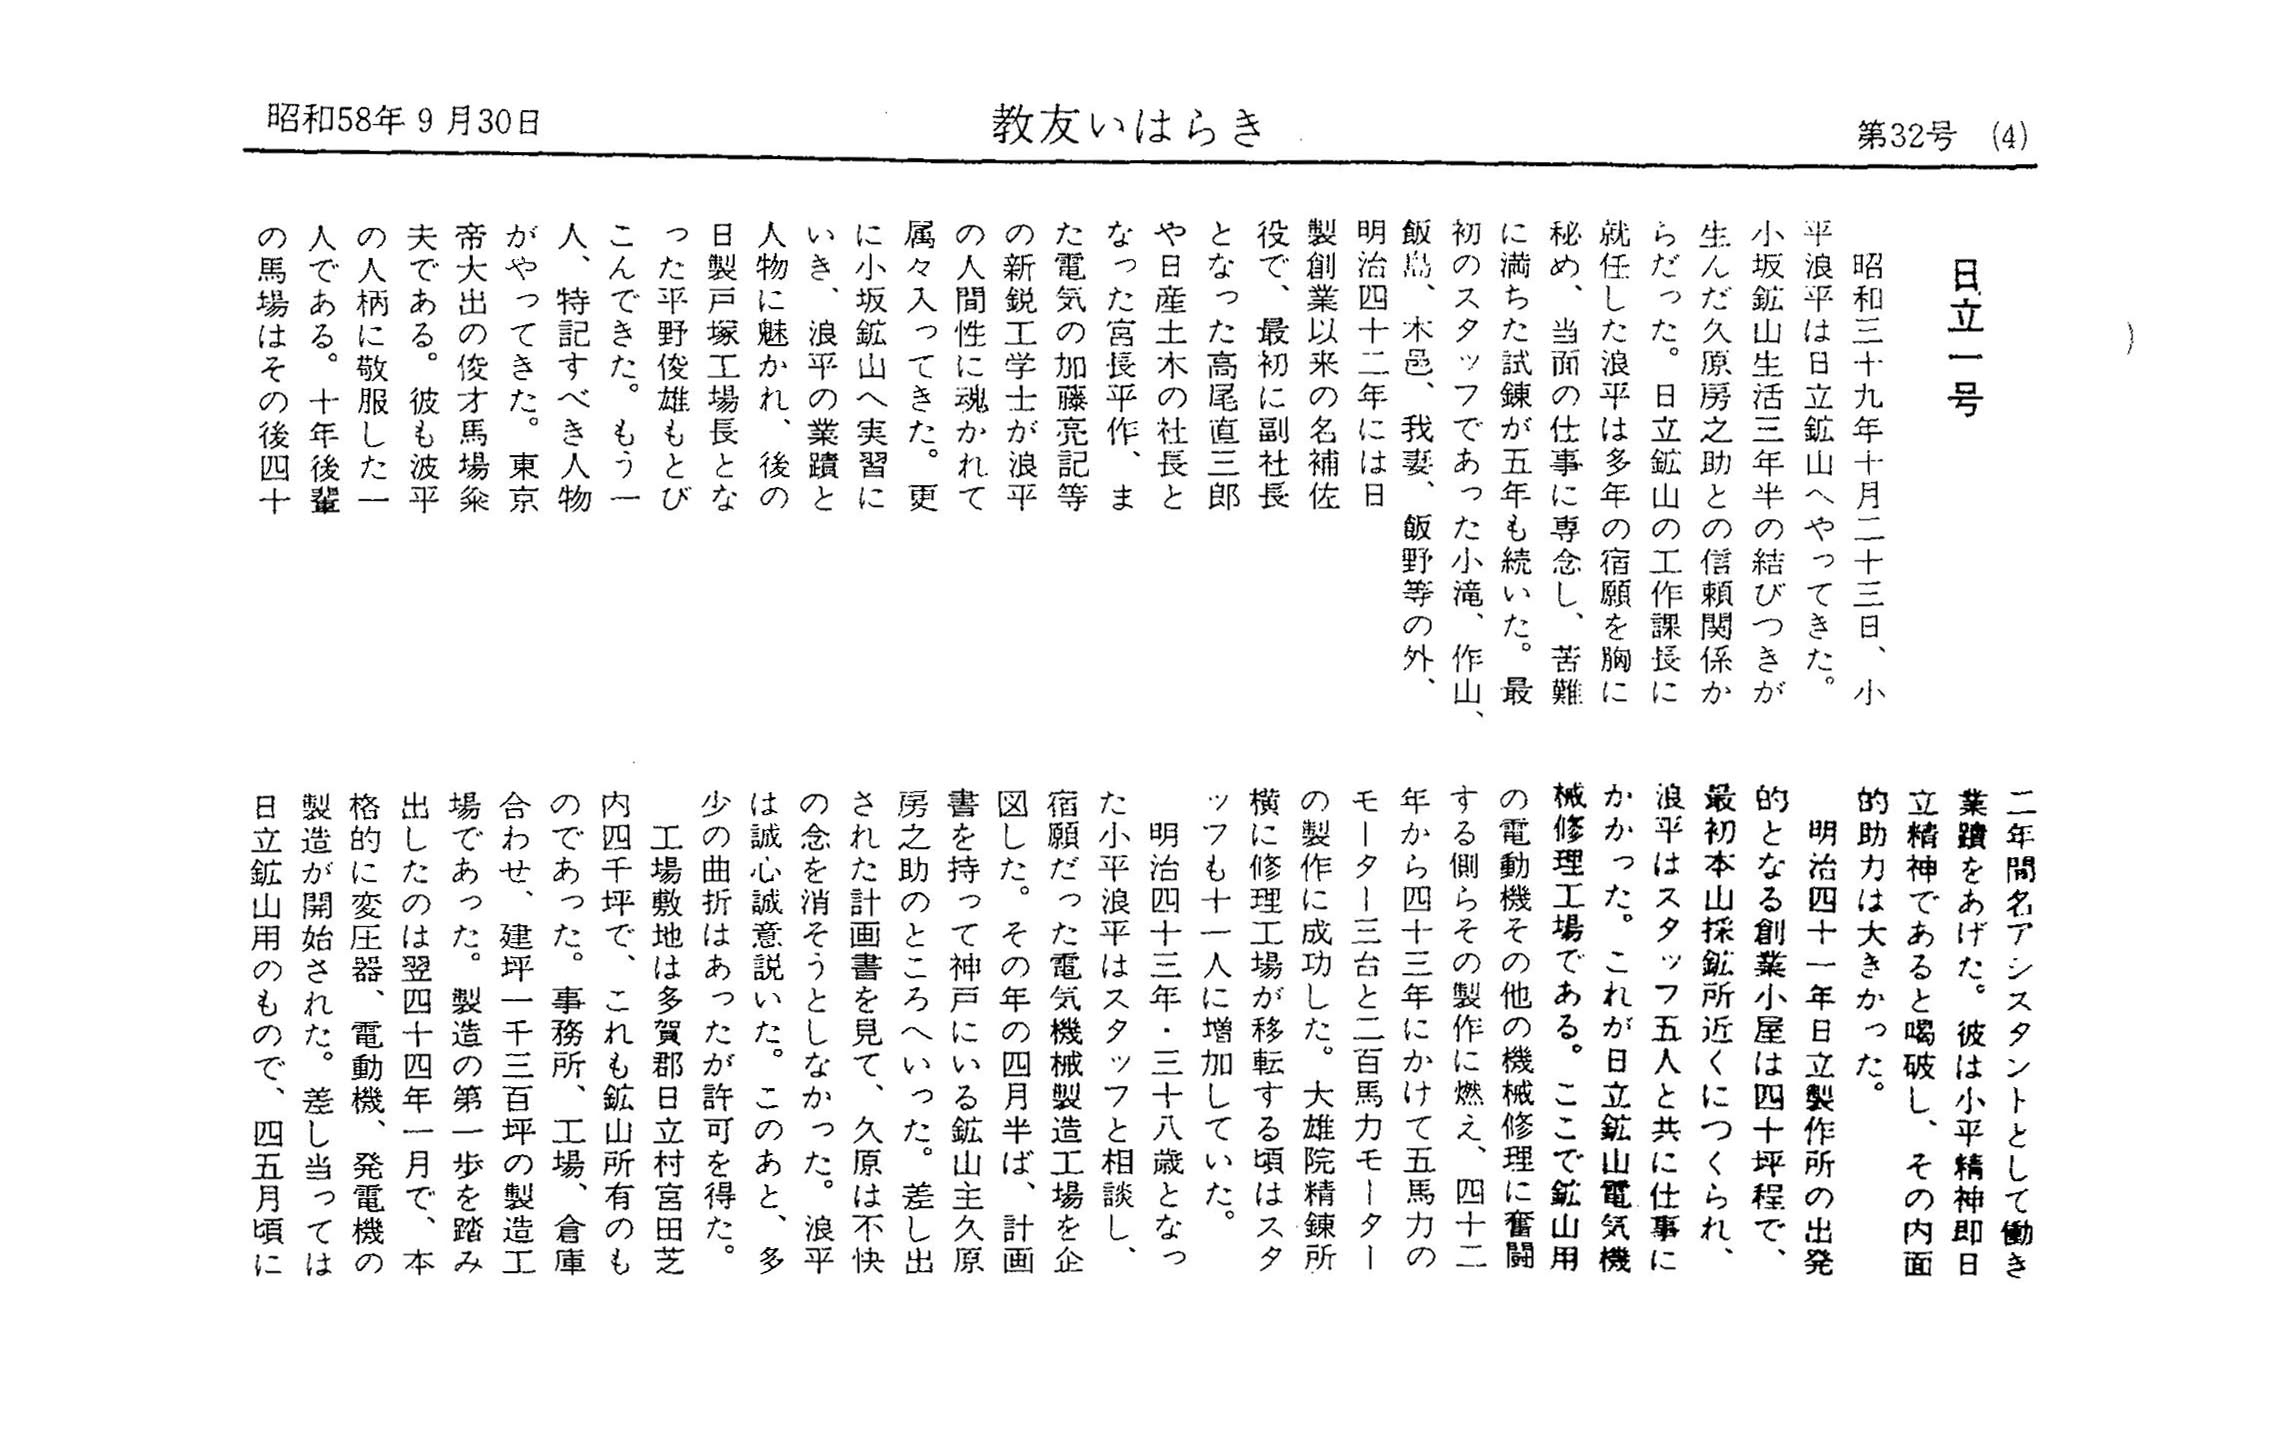 第32号 (4)
教友いはらき
昭和58年9月30日
日立一号
昭和三十九年十月二十三日、小
平浪平は日立鉱山へやってきた。
小坂鉱山生活三年半の結びつきが
生んだ久原房之助との信頼関係か
らだった。日立鉱山の工作課長に
就任した浪平は多年の宿願を胸に
秘め、当面の仕事に専念し、苦難
に満ちた試錬が五年も続いた。最
初のスタッフであった小滝、作山、
飯島、木邑、我妻、飯野等の外、
明治四十二年には日
製創業以来の名補佐
役で、最初に副社長
となった高尾直三郎
や日産土木の社長と
なった宮長平作、ま
た電気の加藤亮記等
の新鋭工学士が浪平
の人間性に魂かれて
属々入ってきた。更
に小坂鉱山へ実習に
いき、浪平の業蹟と
人物に魅かれ、後の
日製戸塚工場長とな
った平野俊雄もとび
こんできた。もう一
人、特記すべき人物
がやってきた。東京
帝大出の俊才馬場粂
夫である。彼も波平
の人柄に敬服した一
人である。十年後輩
の馬場はその後四十
二年間名アシスタントとして働き
業蹟をあげた。彼は小平精神即日
立精神であると喝破し、その内面
的助力は大きかった。
明治四十一年日立製作所の出発
的となる創業小屋は四十坪程で、
最初本山採鉱所近くにつくられ、
浪平はスタッフ五人と共に仕事に
かかった。これが日立鉱山電気機
械修理工場である。ここで鉱山用
の電動機その他の機械修理に奮闘
する側らその製作に燃え、四十二
年から四十三年にかけて五馬力の
モーター三台と二百馬力モーター
の製作に成功した。大雄院精錬所
横に修理工場が移転する頃はスタ
ッフも十一人に増加していた。
明治四十三年・三十八歳となっ
た小平浪平はスタッフと相談し、
宿願だった電気機械製造工場を企
図した。その年の四月半ば、計画
書を持って神戸にいる鉱山主久原
房之助のところへいった。差し出
された計画書を見て、久原は不快
の念を消そうとしなかった。浪平
は誠心誠意説いた。このあと、多
少の曲折はあったが許可を得た。
工場敷地は多賀郡日立村宮田芝
内四千坪で、これも鉱山所有のも
のであった。事務所、工場、倉庫
合わせ、建坪一千三百坪の製造工
場であった。製造の第一歩を踏み
出したのは翌四十四年一月で、本
格的に変圧器、電動機、発電機の
製造が開始された。差し当っては
日立鉱山用のもので、四五月頃に